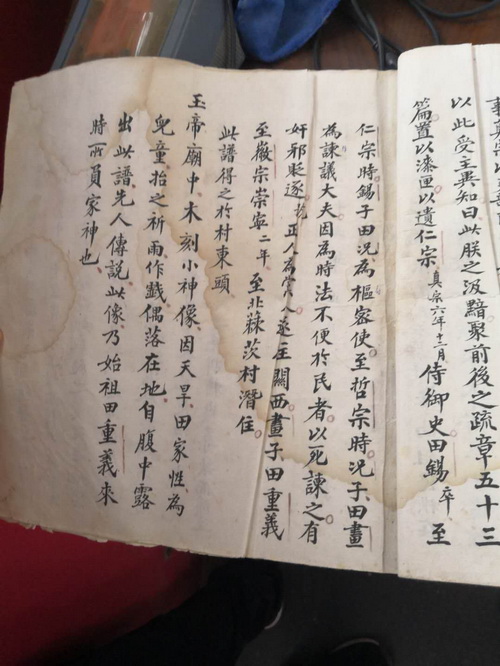 以此受主異知日此朕之汲黯聚前後之疏章五十三
篇置以漆匣以遺仁宗真宗六年十二月侍御史田錫卒至
仁宗時錫子田況為樞密使至哲宗時況子田晝
為諫議大夫因為時法不便於民者以死諫之有
奸邪貶逐正人為黨人遂庄關西晝子田重義
至徽宗崇寧二年至北菻茨村潛住
此譜得之於村東頭
玉帝廟中木刻小神像因天旱田家性為
兒童抬之祈雨作戲偶落在地自腹中露
出此譜先人傳說此像乃始祖田重義來
時所員家神也